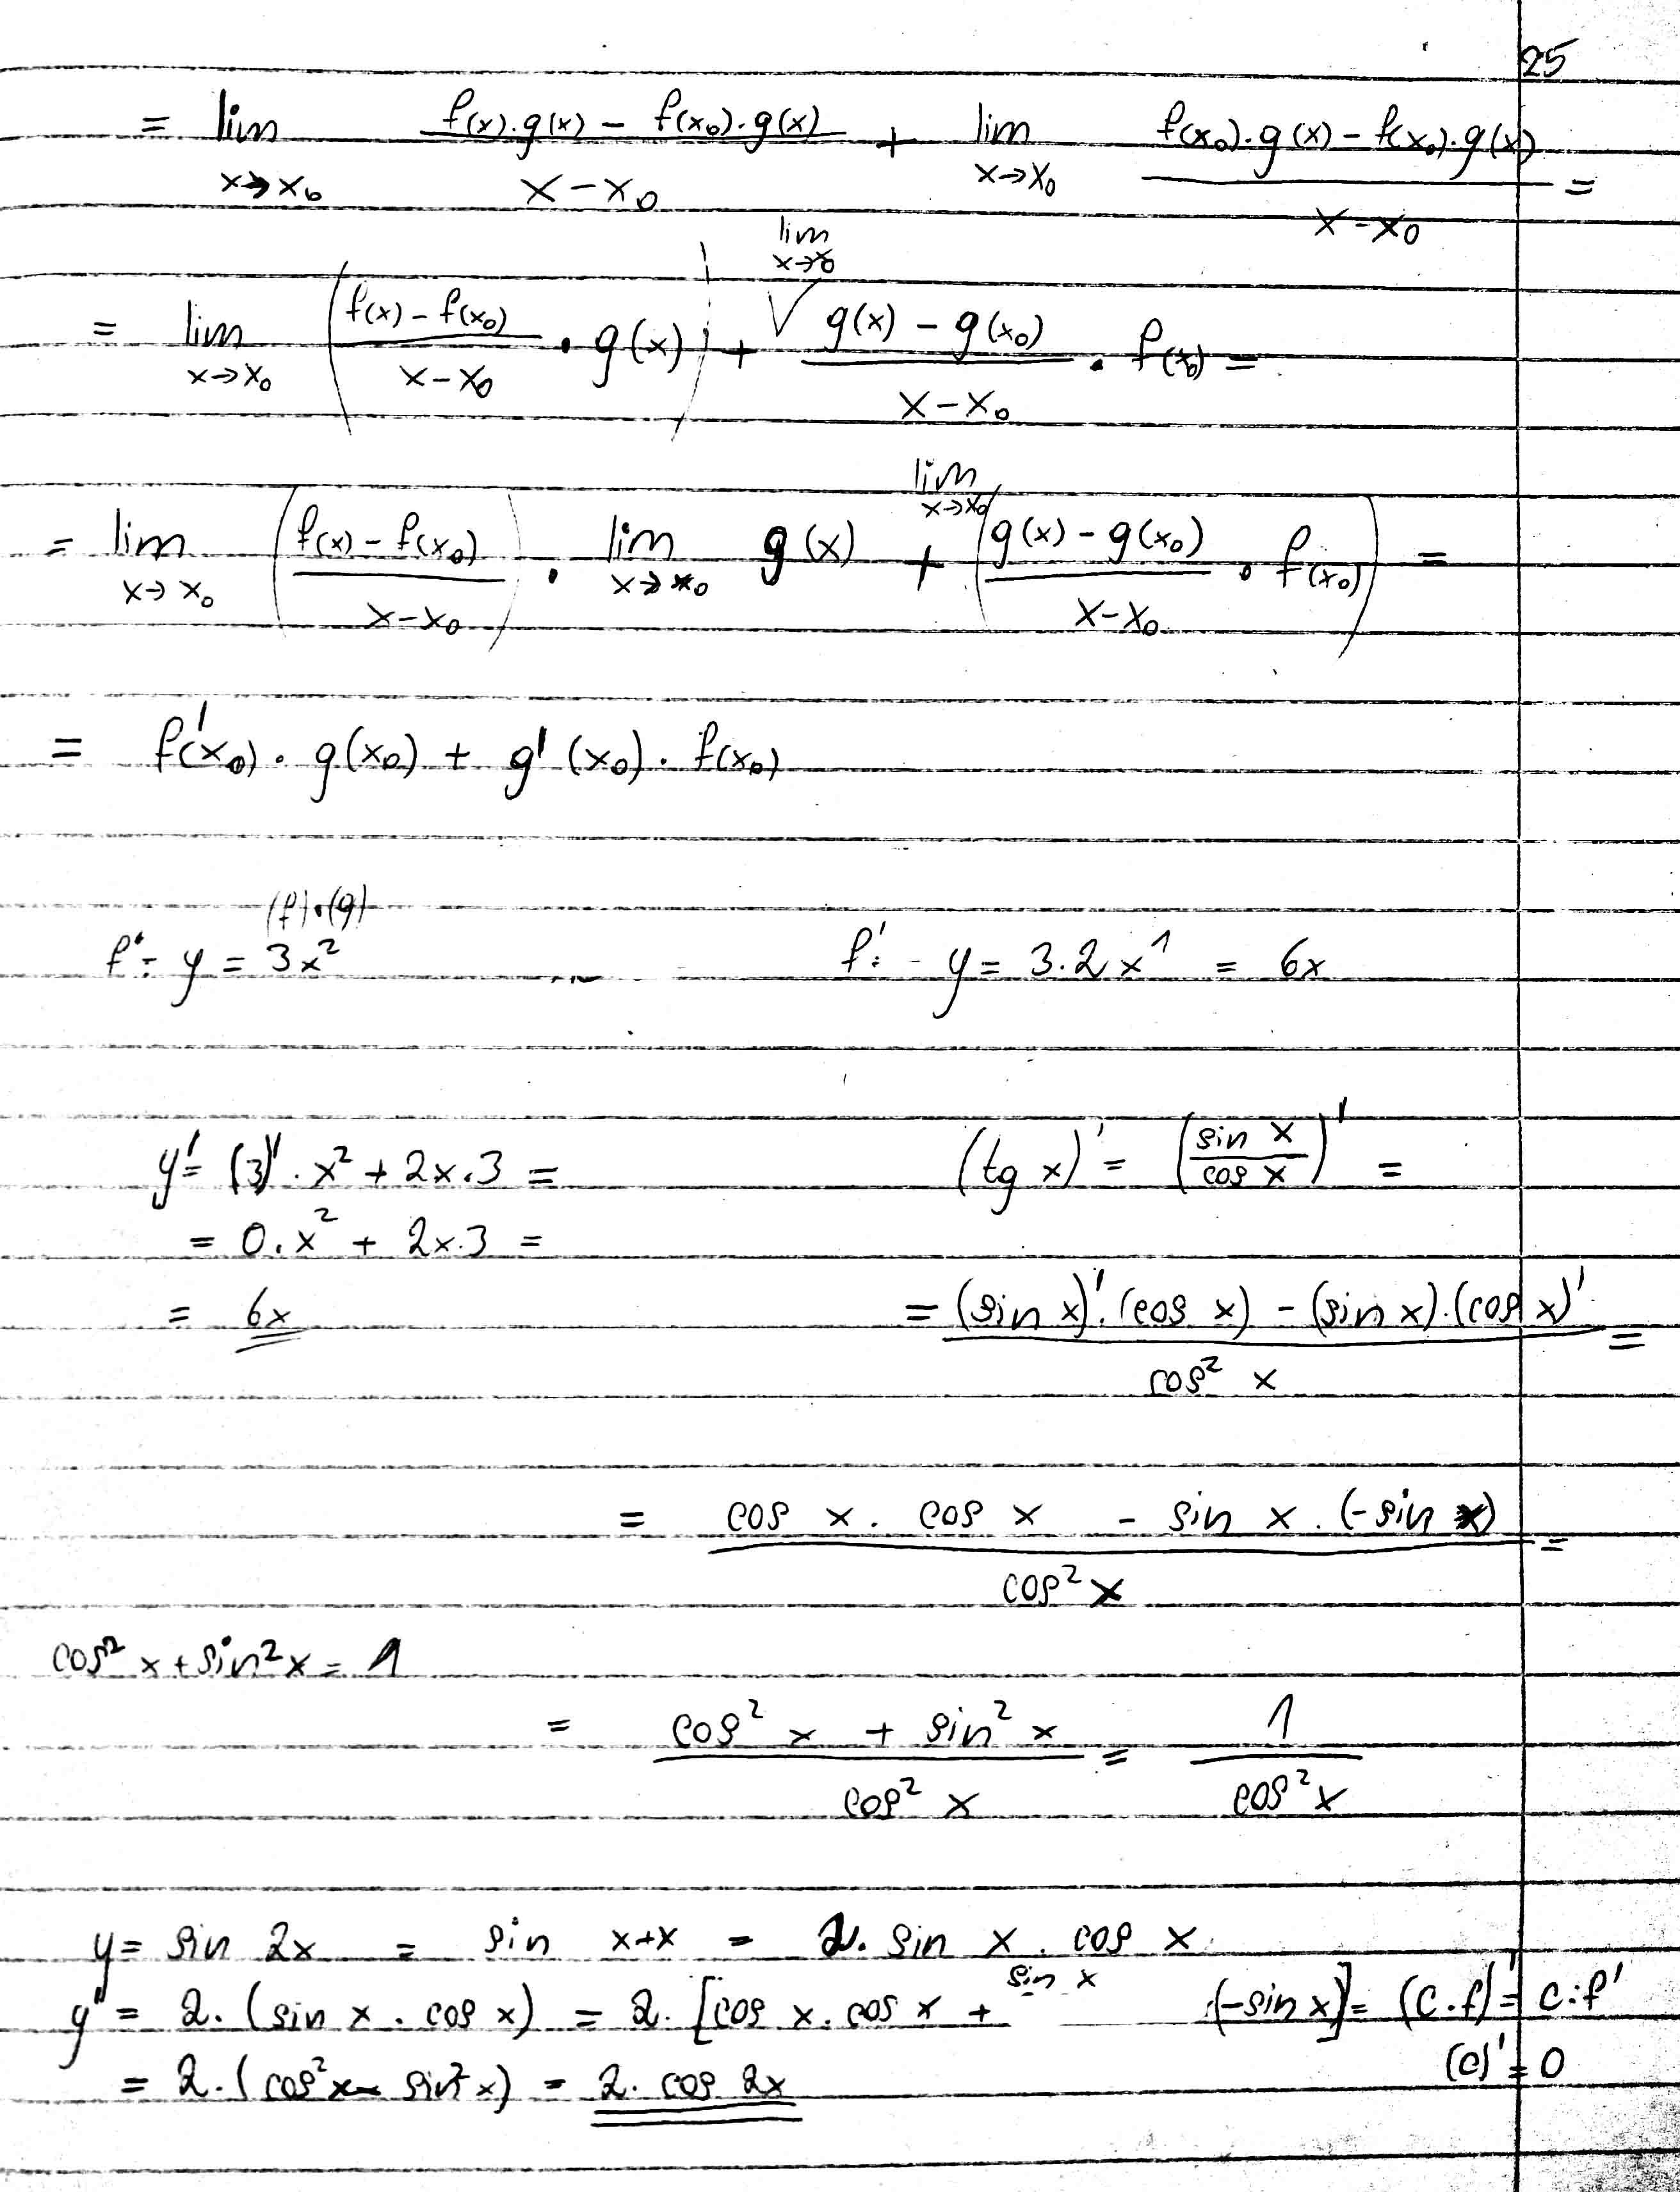 25
= lim x→x₀ (f(x)·g(x) − f(x₀)·g(x))/(x−x₀) + lim x→x₀ (f(x₀)·g(x) − f(x₀)·g(x))/(x−x₀) =
= lim x→x₀ ((f(x) − f(x₀))/(x−x₀) · g(x)) + lim x→x₀ (g(x) − g(x₀))/(x−x₀) · f(x₀) =
= lim x→x₀ ((f(x) − f(x₀))/(x−x₀)) · lim x→x₀ g(x) + lim x→x₀ ((g(x) − g(x₀))/(x−x₀) · f(x₀)) =
= f'(x₀) · g(x₀) + g'(x₀) · f(x₀)
(f)·(g)
f: y = 3x² f': y = 3·2x¹ = 6x
y' = (3)'·x² + 2x·3 =
= 0·x² + 2x·3 =
= 6x
(tg x)' = (sin x/cos x)' =
= ((sin x)'·(cos x) − (sin x)·(cos x)')/cos² x =
= (cos x · cos x − sin x · (−sin x))/cos² x =
cos² x + sin² x = 1
= (cos² x + sin² x)/cos² x = 1/cos² x
y = sin 2x = sin x+x = 2·sin x · cos x
y' = 2·(sin x · cos x)' = 2·[cos x · cos x + sin x ·(−sin x)] = (c·f)' = c·f'
(c)' = 0
= 2·(cos² x − sin² x) = 2· cos 2x